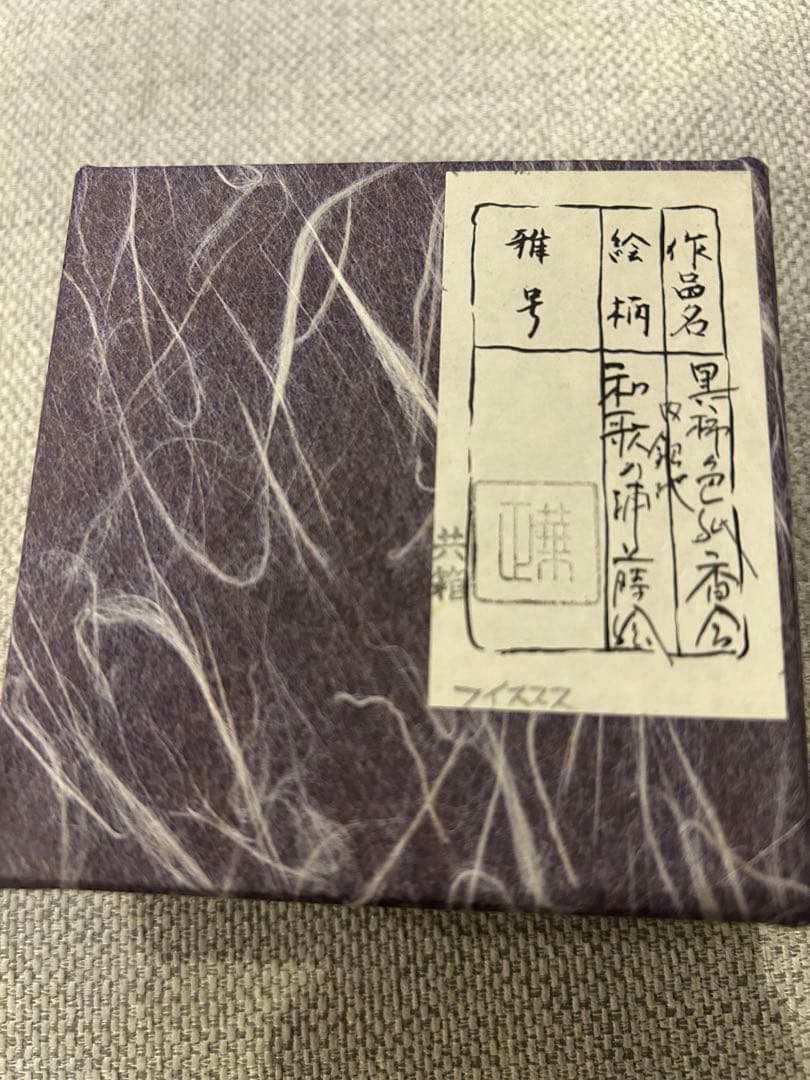 作品名
黒柿色紙香合
内銀地
絵柄
和歌の浦蒔絵
雅号
共箱
フイススス